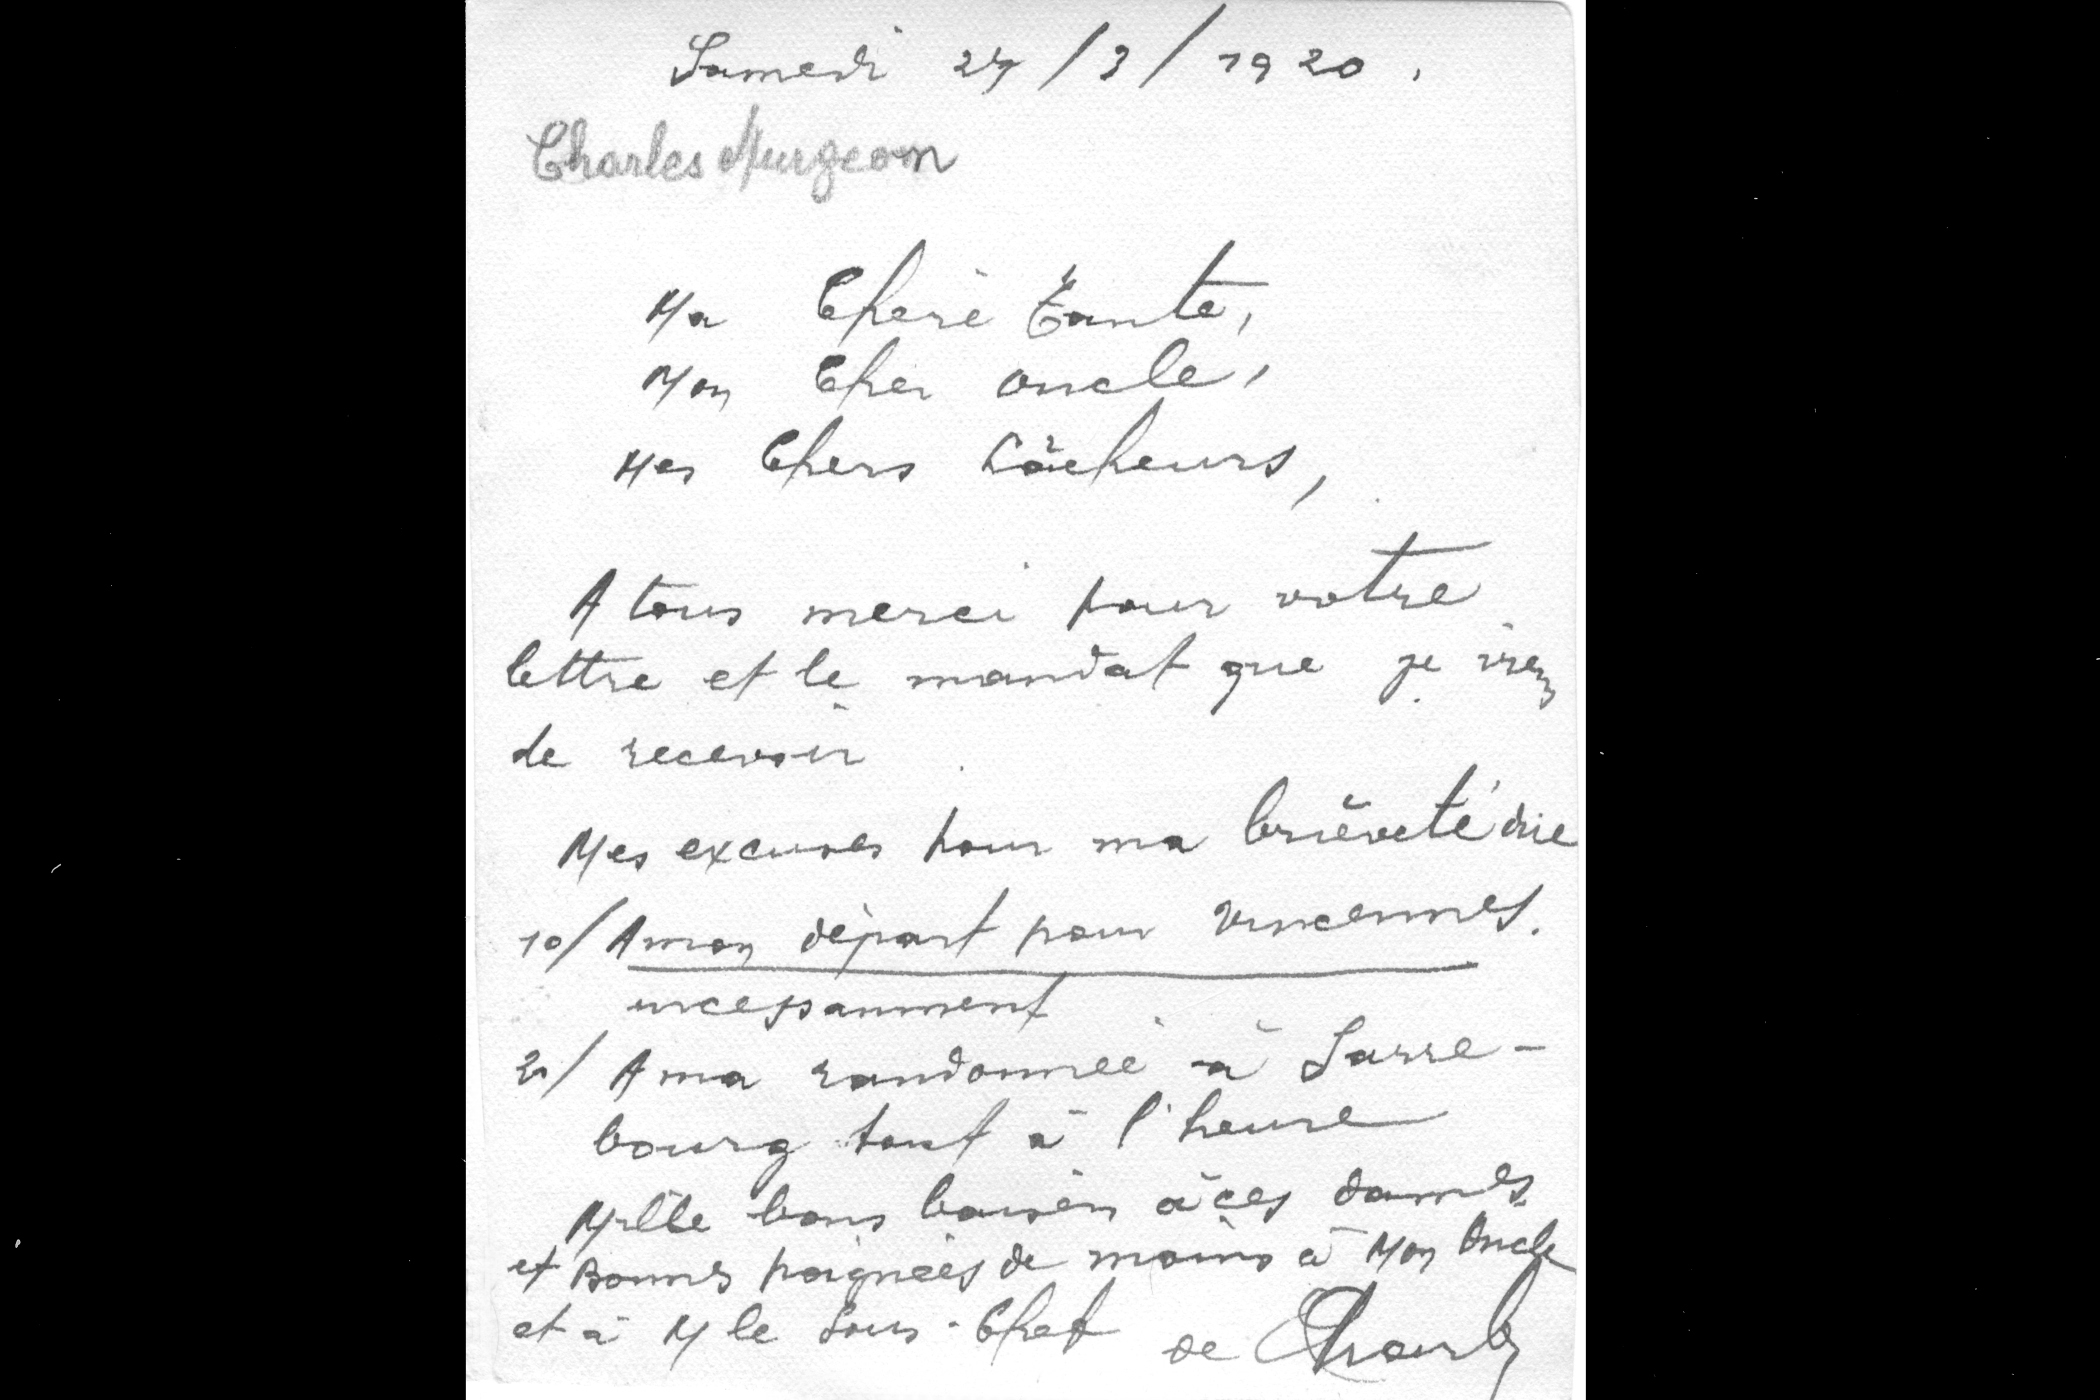 Samedi 27/3/1920.
Charles Murgeon
Ma Chère Tante,
Mon Cher Oncle,
Mes Chers Lâcheurs,
A tous merci pour votre
lettre et le mandat que je viens
de recevoir
Mes excuses pour ma brièveté due
1o/ A mon départ pour Vincennes.
incessamment
2o/ A ma randonnée à Sarre-
bourg tout à l'heure
Mille bons baisers à ces dames
et Bonnes poignées de mains à Mon Oncle
et à M le Sous-Chef de Charles